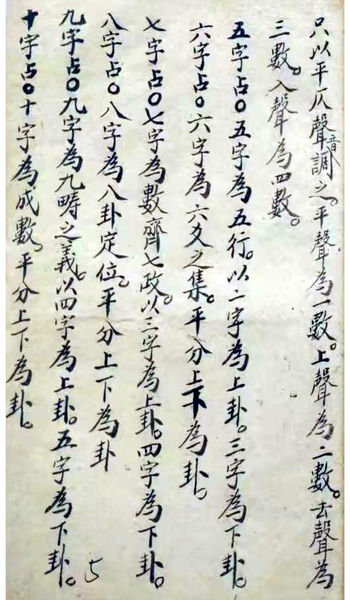 只以平仄聲音調之。平聲為一數。上聲為二數。去聲為
三數。入聲為四數。
五字占。五字為五行。以二字為上卦。三字為下卦。
六字占。六字為六爻之集。平分上下為卦。
七字占。七字為數齊七政。以三字為上卦。四字為下卦。
八字占。八字為八卦定位。平分上下為卦
九字占。九字為九疇之義。以四字為上卦。五字為下卦。
十字占。十字為成數。平分上下為卦。
5